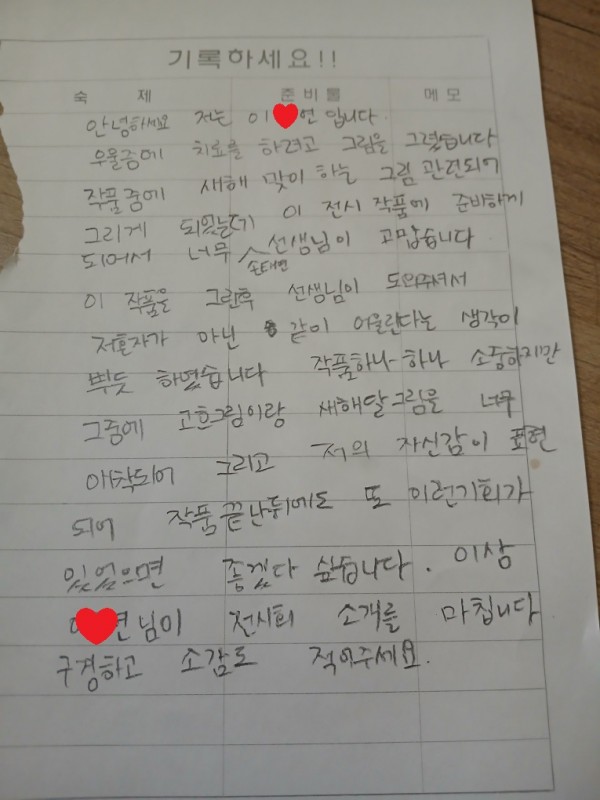 기록하세요!!
숙 제 준비물 메모
안녕하세요 저는 이 연 입니다.
우울증에 치료를 하려고 그림을 그렸습니다
작품중에 새해 맞이 하는 그림 관련되어
그리게 되었는데 이 전시 작품에 준비하게
되어서 너무 손태연 선생님이 고맙습니다
이 작품을 그린후 선생님이 도와주셔서
저혼자가 아닌 같이 어울린다는 생각이
뿌듯 하였습니다 작품하나 하나 소중하지만
그중에 고흐그림이랑 새해달그림을 너무
애착되어 그리고 저의 자신감이 표현
되어 작품 끝난뒤에도 또 이런기회가
있었으면 좋겠다 싶습니다. 이상
이 연님이 전시회 소개를 마칩니다
구경하고 소감도 적어주세요.